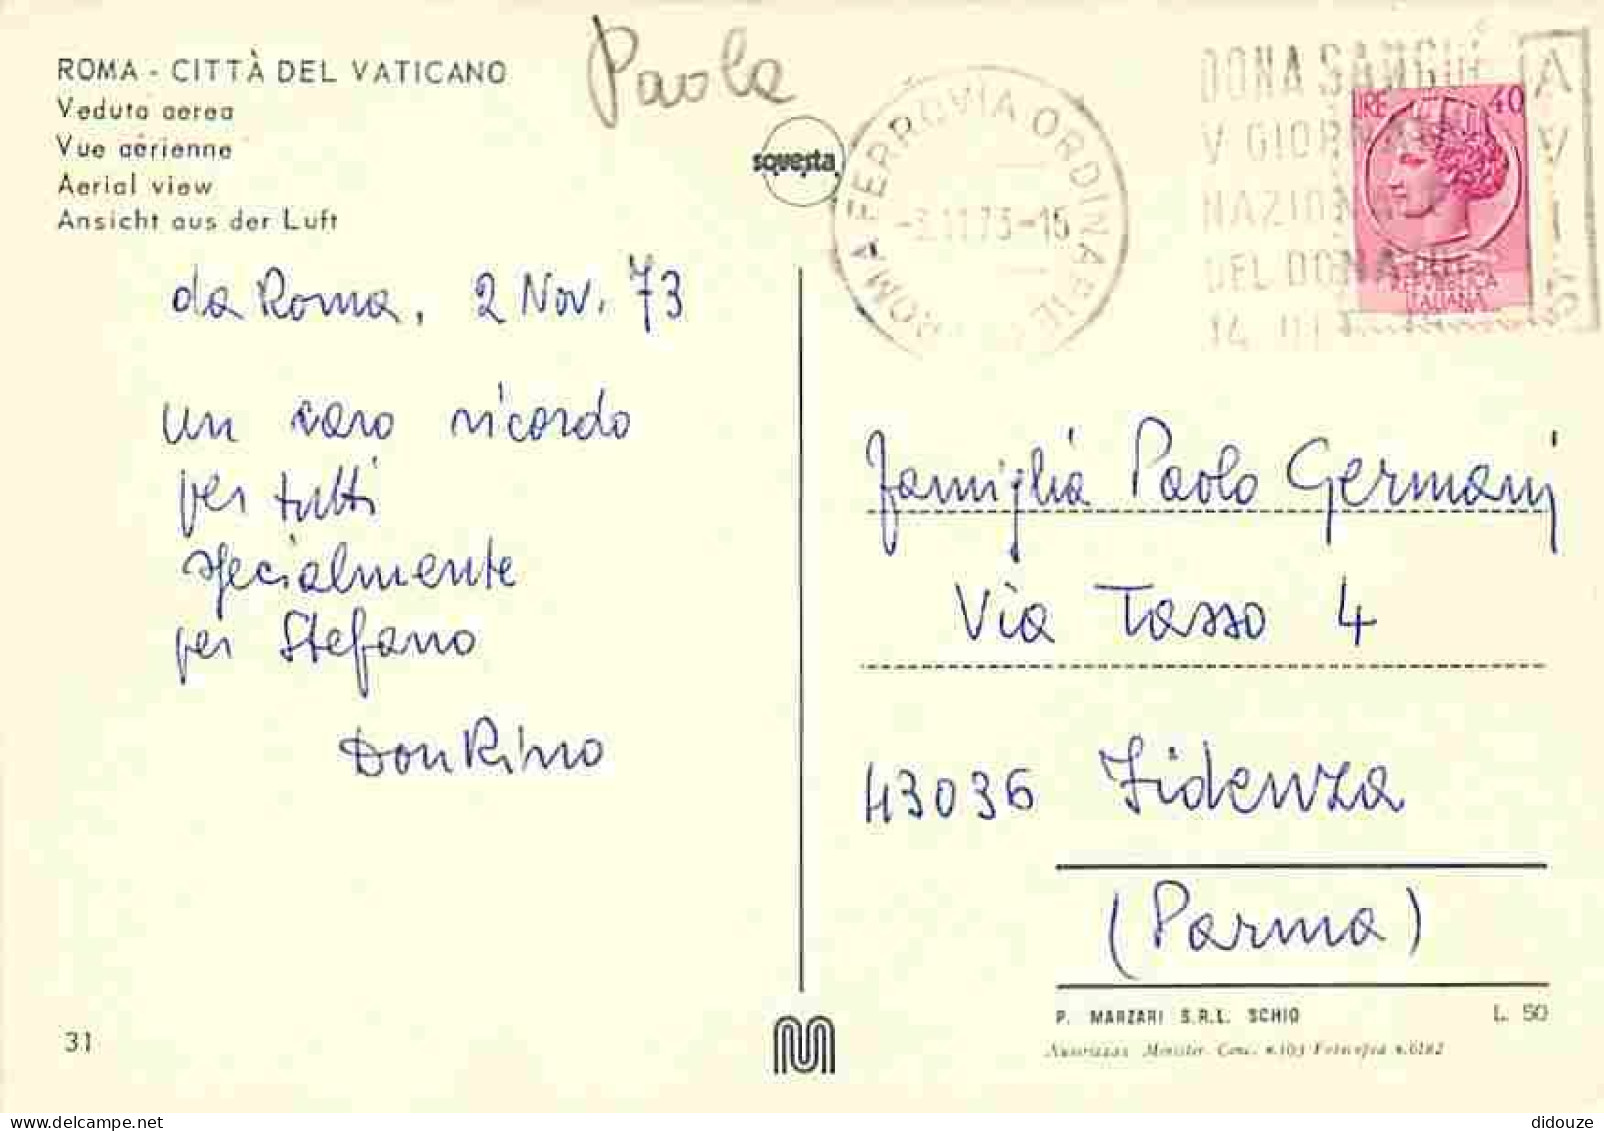 ROMA - CITTÀ DEL VATICANO
Veduta aerea
Vue aérienne
Aerial view
Ansicht aus der Luft
Paola
squesta
ROMA FERROVIA ORDINARIE
-3.11.73-15
DONA SANGUE
V GIORNATA
NAZIONALE
DEL DONA
14
AVIS
LIRE 40
REPVBBLICA
ITALIANA
da Roma, 2 Nov. 73
un caro ricordo
per tutti
specialmente
per Stefano
Don Rino
famiglia Paolo Germani
Via Tasso 4
43036 Fidenza
(Parma)
P. MARZARI S.R.L. SCHIO
L. 50
Autorizzaz. Minister. Conc. n.103 Fotocopea n.6182
31
didouze